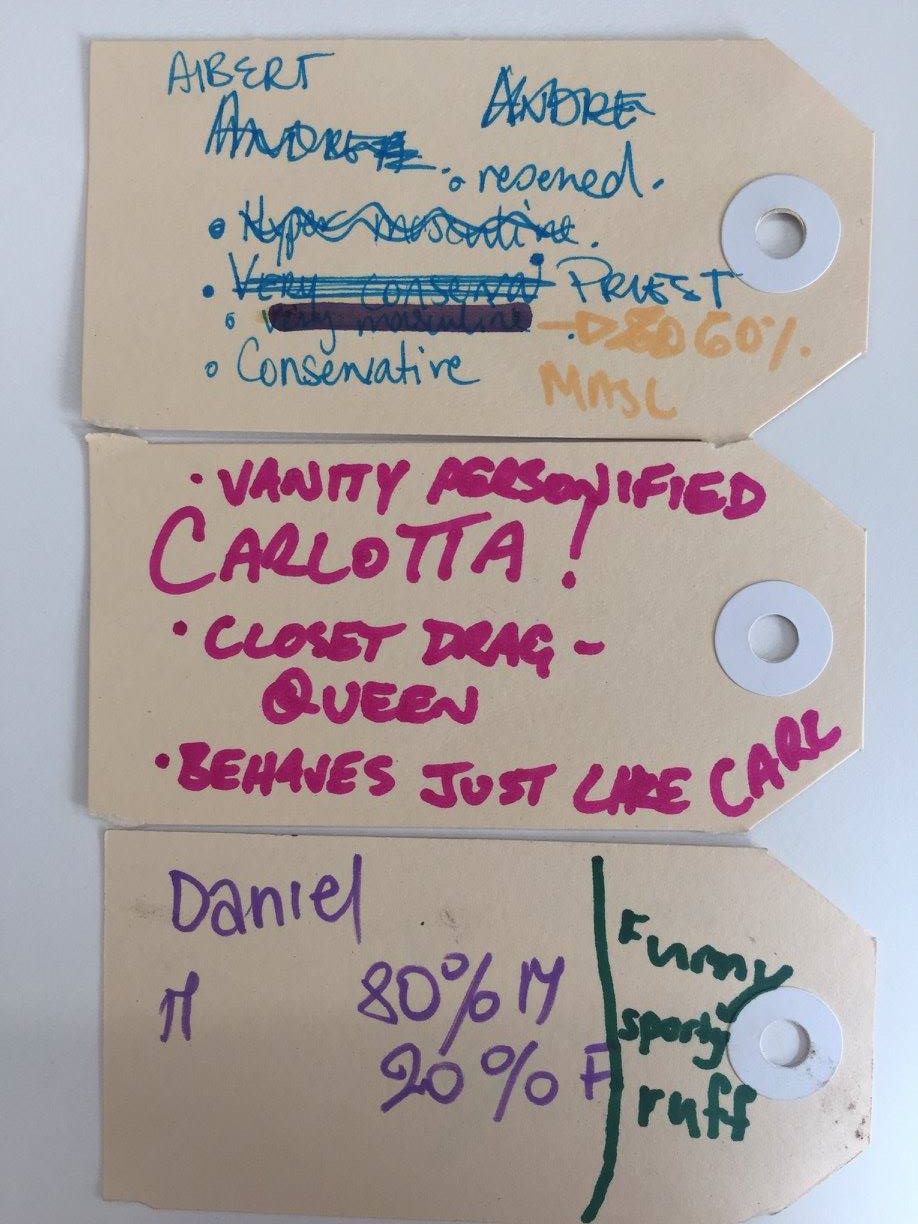 AlBERT
ANDRE
ANDRE
• resened.
• Hyper masculine.
• Very conservat PRIEST
• Very masculine → 60%.
MASC
• Conservative
• VANITY PERSONIFIED
CARLOTTA!
• CLOSET DRAG-
QUEEN
• BEHAVES JUST LIKE CARL
Daniel
M 80% M
20% F
Funny
sporty
ruff